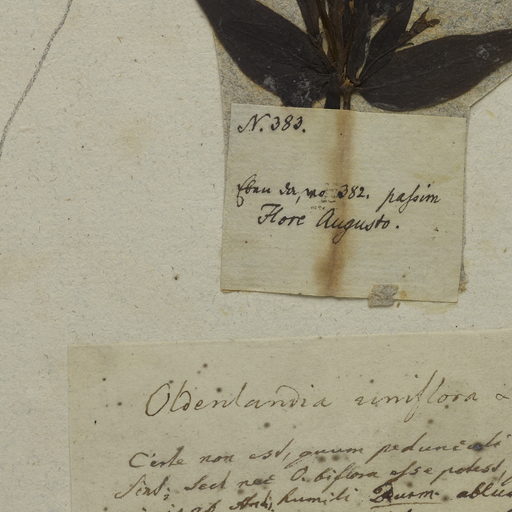 N. 383.
Eben da, wo 382. passim
Flore Augusto.
Oldenlandia uniflora
Certe non est, quum pedunculi
sint; sed nec O. biflora esse potest,
humili Burm.